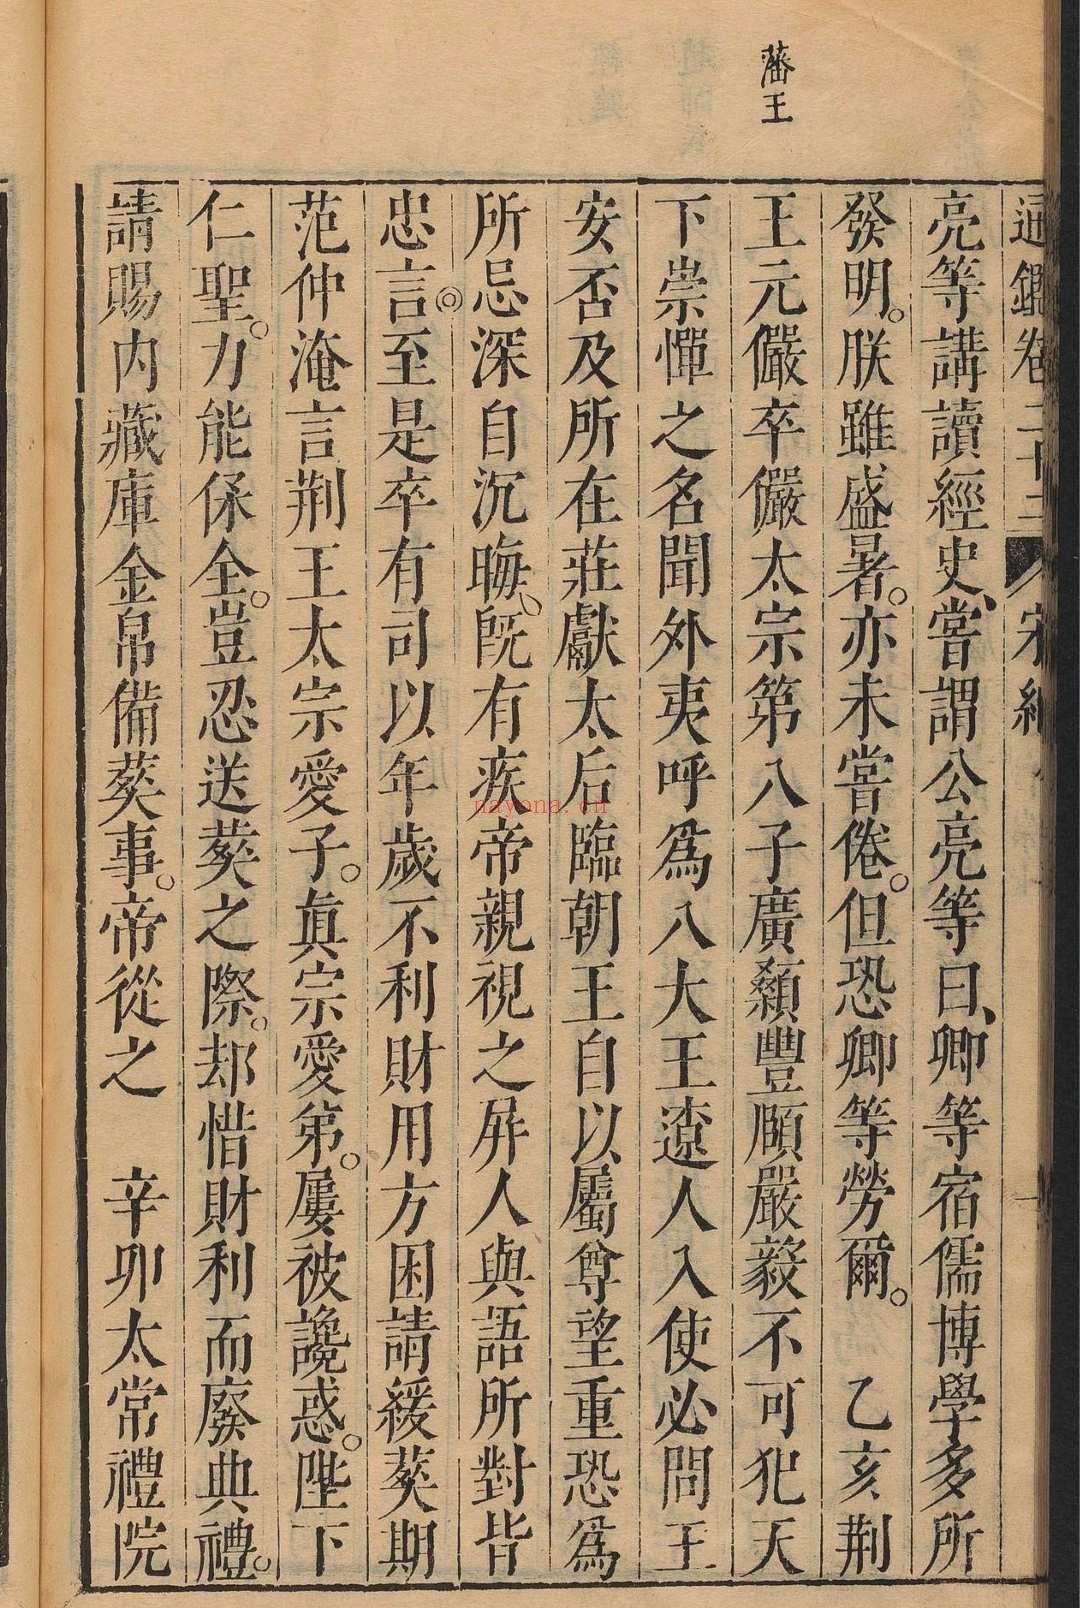 藩王
通鑑卷二十三 宋紀
亮等講讀經史、嘗謂公亮等曰、卿等宿儒博學多所
發明。朕雖盛暑。亦未嘗倦。但恐卿等勞爾。 乙亥荆
王元儼卒儼太宗第八子廣顙豐頤嚴毅不可犯天
下崇憚之名聞外夷呼爲八大王遼人入使必問王
安否及所在莊獻太后臨朝王自以屬尊望重恐爲
所忌深自沉晦、旣有疾帝親視之屏人與語所對皆
忠言◎至是卒有司以年歲不利財用方困請緩葬期
范仲淹言荆王太宗愛子。眞宗愛弟。屢被讒惑。陛下
仁聖。力能保全。豈忍送葬之際。却惜財利而廢典禮。
請賜内藏庫金帛備葬事。帝從之 辛卯太常禮院
nayona.cn